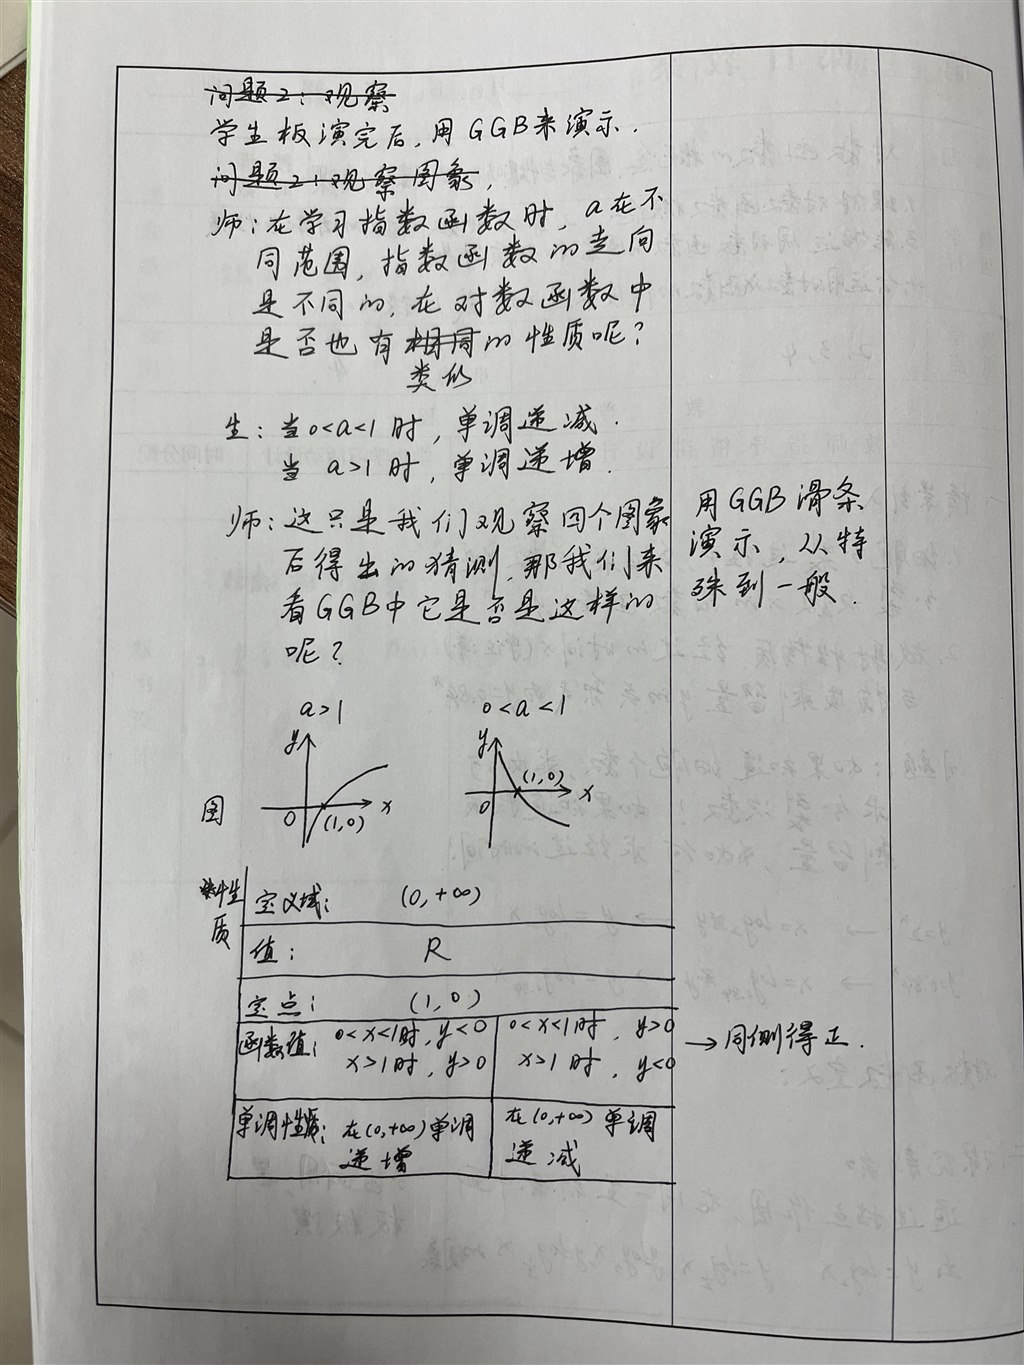 问题2:观察
学生板演完后,用GGB来演示.
问题2:观察图象,
师:在学习指数函数时,a在不
同范围,指数函数的走向
是不同的,在对数函数中
是否也有相同的性质呢?
类似
生:当0<a<1时,单调递减.
当 a>1时,单调递增.
师:这只是我们观察四个图象
后得出的猜测,那我们来
看GGB中它是否是这样的
呢?
用GGB滑条
演示,从特
殊到一般.
a>1
0<a<1
y
x
O
(1,0)
y
x
O
(1,0)
图
性
质
定义域: (0,+∞)
值: R
定点: (1,0)
函数值: 0<x<1时,y<0
x>1时,y>0
0<x<1时,y>0
x>1时,y<0
→同侧得正.
单调性: 在(0,+∞)单调
递增
在(0,+∞)单调
递减